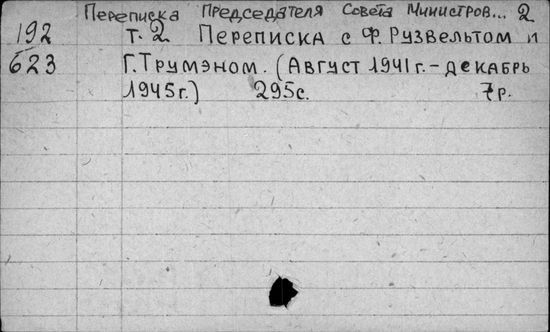 Переписка Председателя Совета Министров... 2
192 т. 2 Переписка с Ф. Рузвельтом и
623 Г. Трумэном. (Август 1941 г. - декабрь
1945 г.) 295 с. 7 р.